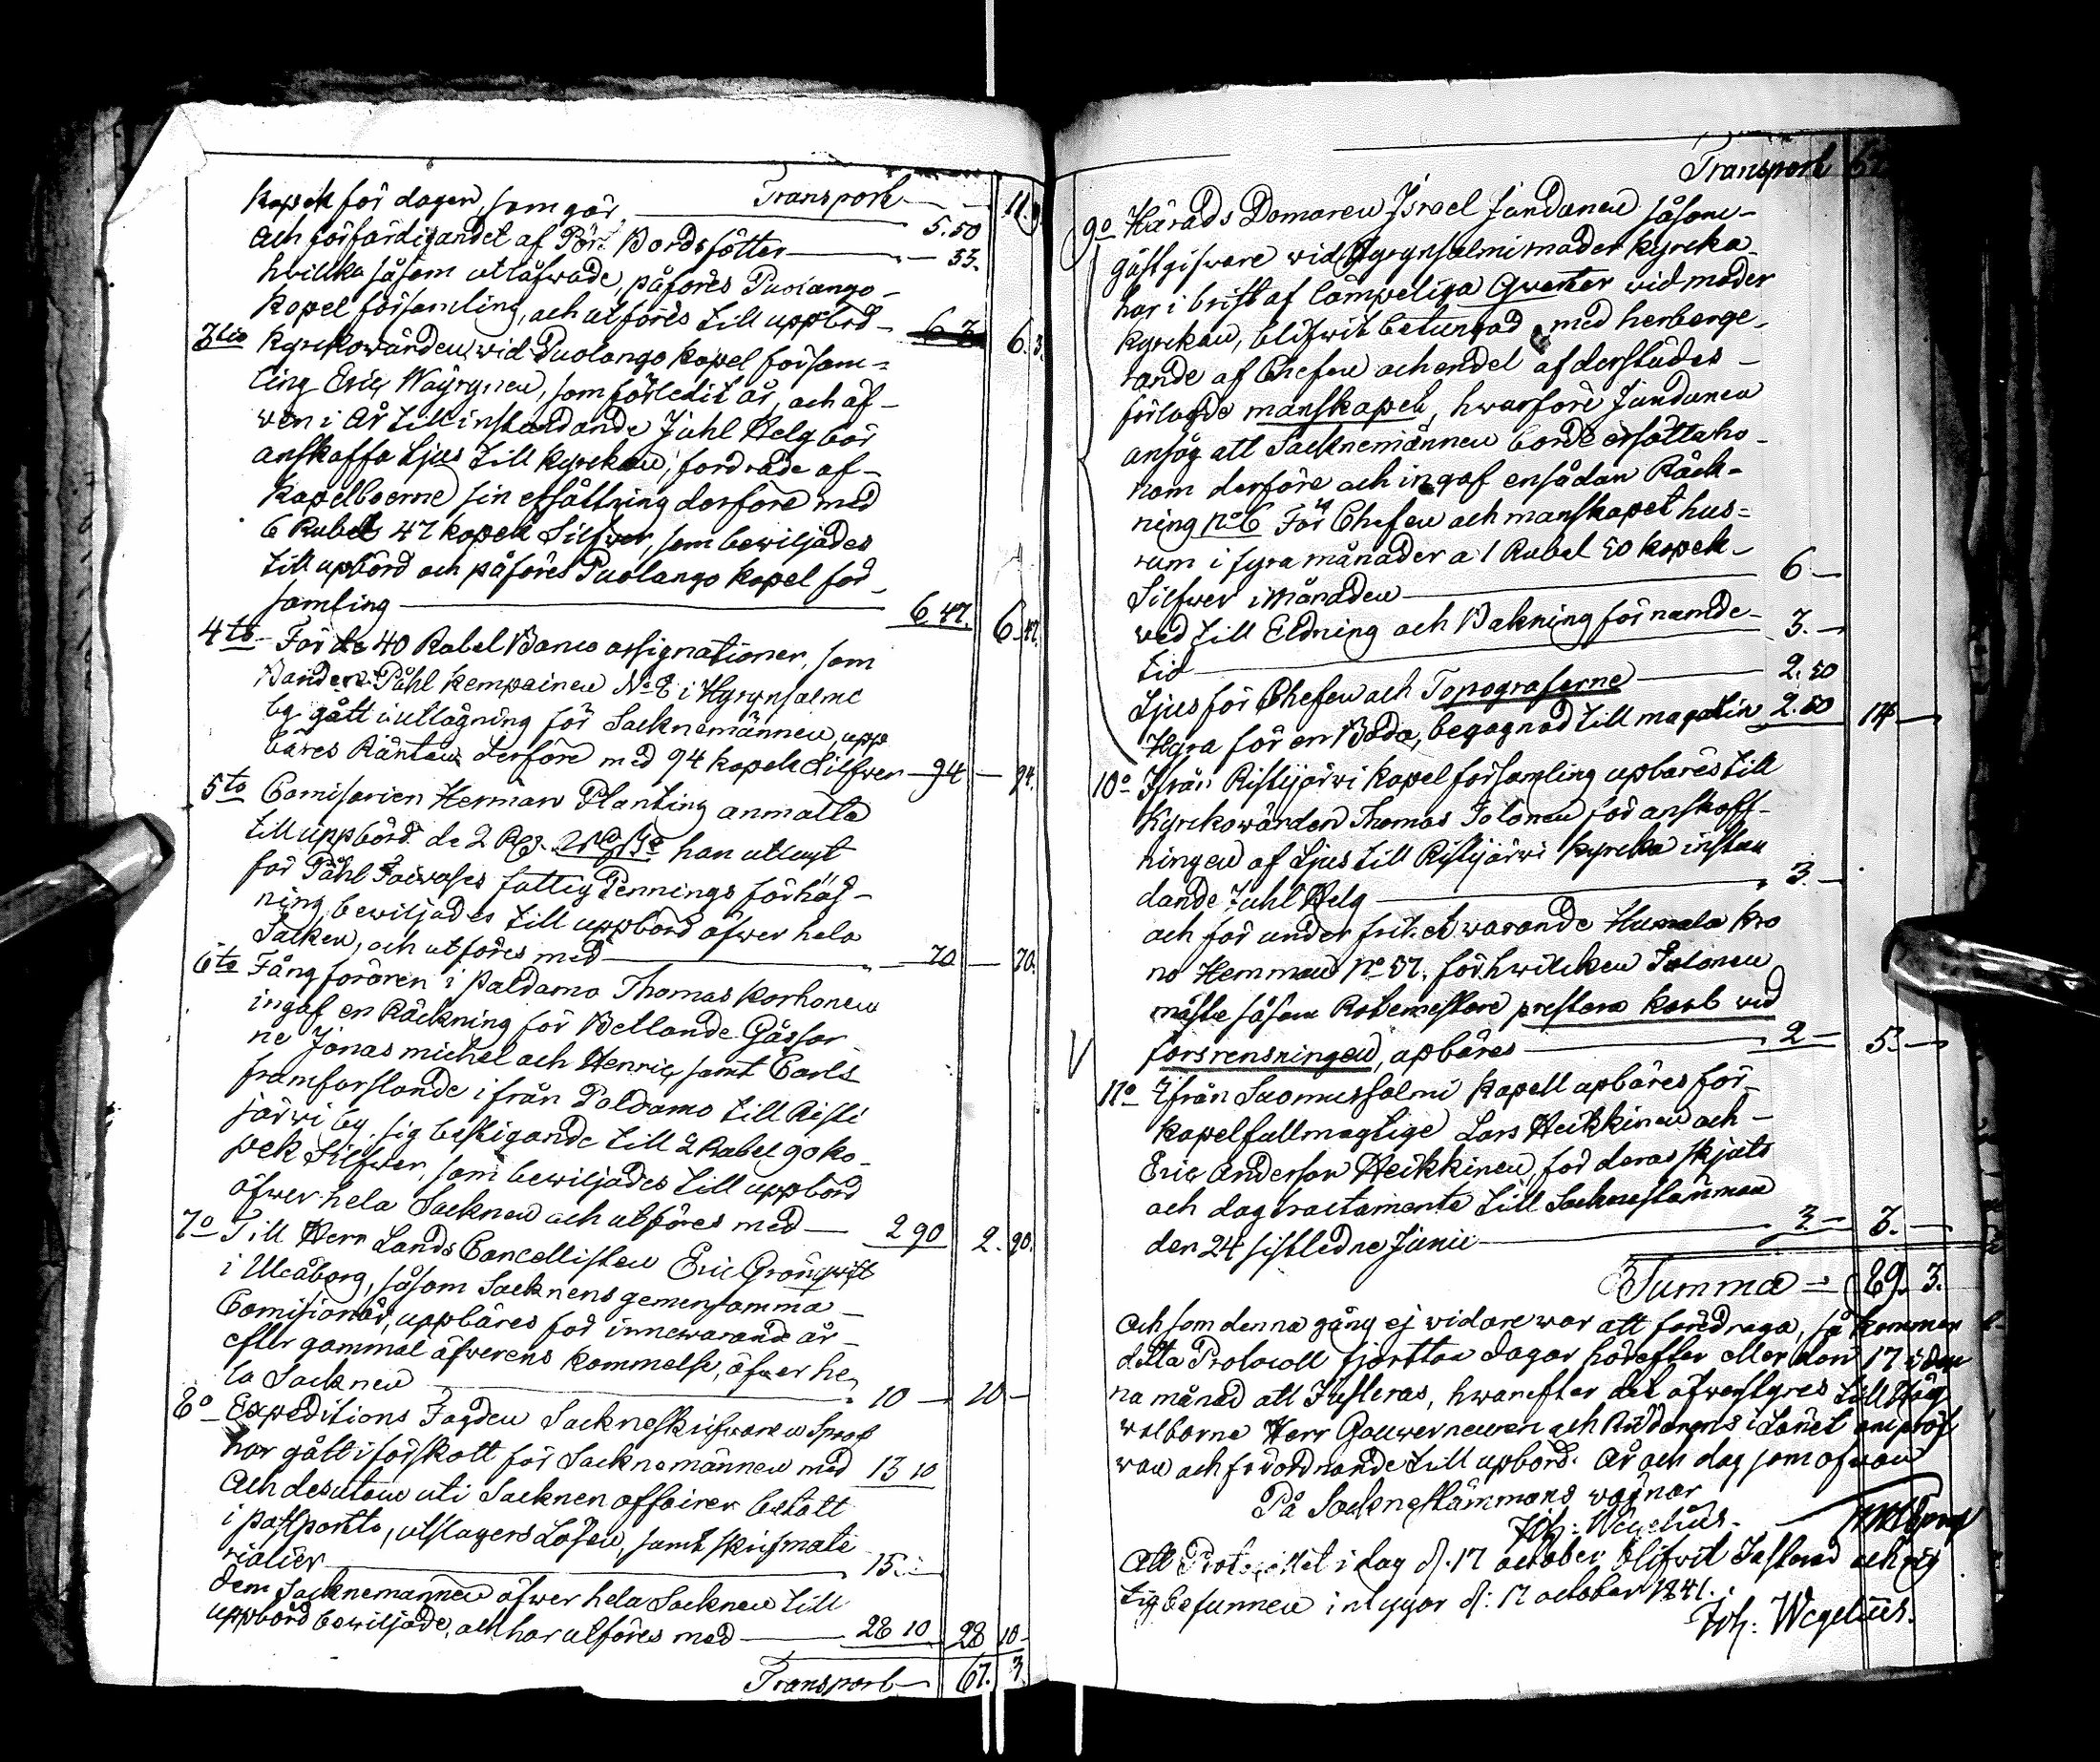 Transport — 11. 9.
kopek för dagen, som gör — 5.50
Och förfärdigandet af Bords fötter — 53.
hvilka såsom utlåfwade, påföres Puolango
kapel församling, och utföres till uppbörd — 6 3 6. 3.
3tio Kyrckowärden wid Puolango kapel försam-
ling Eric Wäyrynen, som förledit år, och äf-
wen i År till instundande Juhl Helg bör
anskaffa Ljus till kyrckan, fordrade af
kapelboerne sin ersättning derföre med
6 Rubel 47 kopek Silfwer, som bewiljades
till upbörd och påföres Puolango kapel för-
samling — 6 47. 6. 47.
4to För de 40 Rubel Banco assignationer, som
Bonden Påhl Kempainen No 8 i Hyrynsalmi
by gått i utlägning för Socknemännen, upp
bäres Räntan derföre med 94 kopek Silfwer — 94 — 94.
5to Comisarien Herman Planting anmälte
till uppbörd de 2 han utlagt
för Påhl fattig Pennings förhöj-
ning, bewiljades till uppbörd öfwer hela
Socken, och utföres med — 70 — 70.
6to Fångföraren i Paldamo Thomas Korhonen
ingaf en Räckning för Betlande Gossar
ne Jonas Michel och Henric samt Carls
framforslande ifrån Paldamo till Risti
järwi by, sig bestigande till 2 Rubel 90 ko-
pek Silfwer, som bewiljades till uppbörd
öfwer hela Socknen och utföres med — 2 90 2. 90.
7o Till Herr Lands Cancellisten Eric Grönqwist
i Uleåborg, såsom Socknens gemensamma
Comisionär, uppbäres för innewarande år
efter gammal öfwerens kommelse, öfwer he-
la Socknen — 10 — 10 —
8o Expeditions Fogden Sockneskrifwaren
har gått i förskott för Socknemännen med 13 10
Och desutom uti Socknen affairer bekått
i postporto, utslagers Lösen, samt skrifmate
rialier — 15. —
dem Socknemännen öfwer hela Socknen till
uppbörd bewiljade, och har utföres med — 28 10 28 10
Transport — 67. 3.
Transport 67
9o Härads Domaren Israel Jundanen såsom
gästgifware wid Hyrynsalmi moder kyrcka
har i brist af lämpeliga Quarter wid moder
kyrckan, blifwit betungad med herberge-
rande af Chefen och en del af derstädes
förlagde manskapet, hwarföre Jundanen
ansåg att Socknemännen borde ersätta ho-
nom derföre och ingaf en sådan Räck-
ning No 6 För Chefen och manskapet hus-
rum i fyra månader a 1 Rubel 50 kopek
Silfwer i Månaden — 6 —
wed till Eldning och Bakning för nämde
tid — 3. —
Ljus för Chefen och Topograferne — 2. 50
Hyra för en Boda, begagnad till magatin 2. 50 14 —
10o Ifrån Ristijärwi kapel församling upbäres till
Kyrckowärden Thomas Tolonen för anskaff-
ningen af Ljus till Ristijärwi kyrcka instun
dande Juhl Helg — 3. —
och för under frihet warande Humala kro
no Hemman No 57. för hwilcken Tolonen
måste såsom Rotemestare prestera karl vid
forsrensningen, upbäres — 2 — 5. —
11o Ifrån Suomussalmi kapell upbäres för
kapelfullmägtige Lars Heikkinen och
Eric Anderson Heikkinen, för deras skjuts
och dagtractamente till Sockenstämman
den 24 sistledne Junii — 3. — 3. —
Summa = 89. 3.
Och som denna gång ej widare war att föredraga, så kommer
detta Protocoll fjortton dagar härefter eller den 17 i den
na månad att Justeras, hwarefter det öfwerlyres till Hög
wälborne Herr Gouverneuren och Riddarens i Länet
wan och förordnande till upbörd. År och dag som ofwan
På Sockenstämmans wägnar
Joh: Wegelius.
Att Protocollet i dag d. 17 october blifwit Justerad och rig
tig befunnen intygar d: 17 october 1841.
Joh: Wegelius.